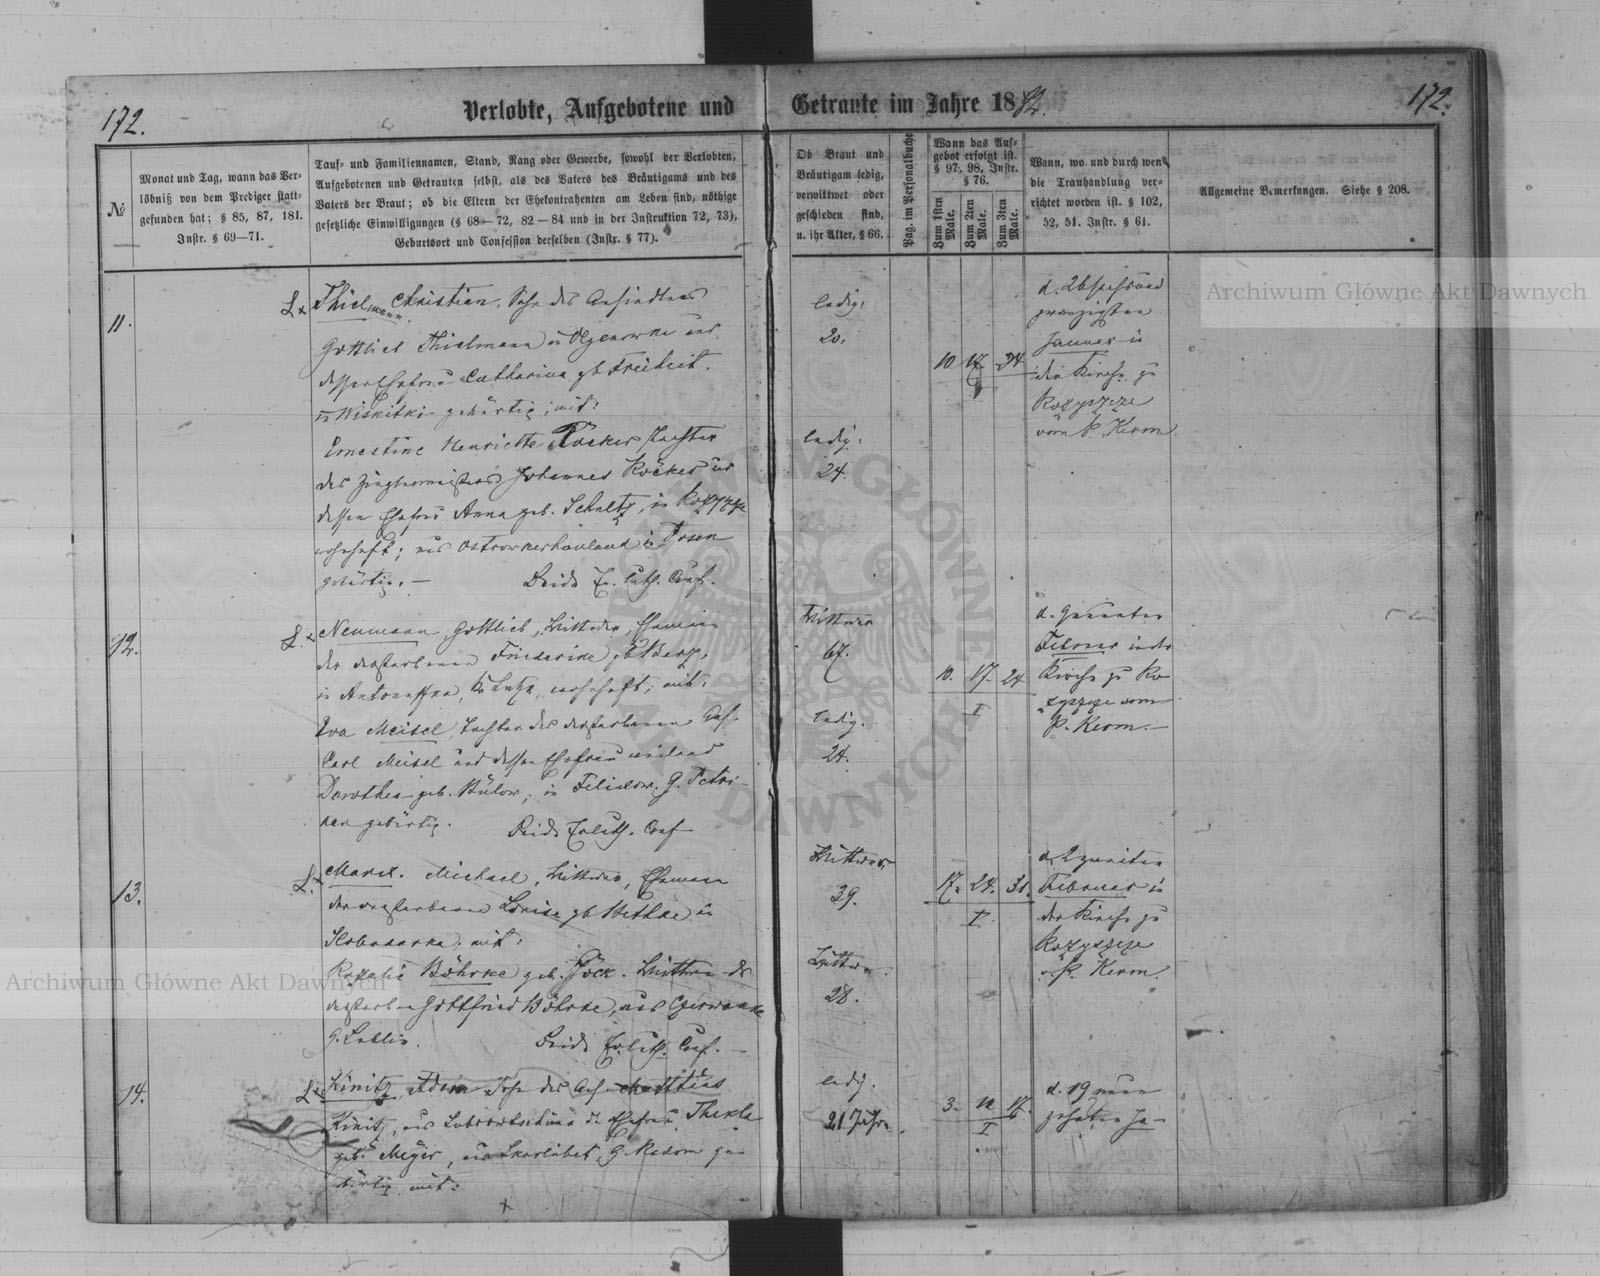 172.
Verlobte, Aufgebotene und
Getraute im Jahre 1882.
172.
№
Monat und Tag, wann das Ver-
löbniß von dem Prediger statt-
gefunden hat; § 85, 87, 181.
Instr. § 69—71.
Tauf- und Familiennamen, Stand, Rang oder Gewerbe, sowohl der Verlobten,
Aufgebotenen und Getrauten selbst, als des Vaters des Bräutigams und des
Vaters der Braut; ob die Eltern der Ehekontrahenten am Leben sind, nöthige
gesetzliche Einwilligungen (§ 68—72, 82—84 und in der Instruktion 72, 73),
Geburtsort und Confession derselben (Instr. § 77).
Ob Braut und
Bräutigam ledig,
verwittwet oder
geschieden sind,
u. ihr Alter, § 66.
Pag. im Personalbuche
Wann das Auf-
gebot erfolgt ist.
§ 97, 98, Instr.
§ 76.
Zum 1sten Male.
Zum 2ten Male.
Zum 3ten Male.
Wann, wo und durch wen
die Trauhandlung ver-
richtet worden ist. § 102,
52, 51. Instr. § 61.
Allgemeine Bemerkungen. Siehe § 208.
11.
Thielmann Christian, Sohn des Ansiedlers
Gottlieb Thielmann in
dessen Ehefrau Catharina gb Freiheit,
Wiskitki gebürtig; mit:
Ernestine Henriette Röcker, Tochter
des Johannes Röcker und
dessen Ehefrau Anna geb. Schultz, in Rozyszcze
wohnhaft; aus Ostrowkerhauland in Posen
gebürtig. — Beide Ev. luth. Conf.
ledig.
20.
ledig.
24.
10 17. 24
d. 26 sechsund
zwanzigsten
Januar in
der Kirche zu
Rozyszcze
vom P. Kerm.
12.
Neumann, Gottlieb, Wittwer, Ehemann
der verstorbenen Friederike gb
in Antonowka, Kr Lutzk, wohnhaft; mit:
Eva Meisel, Tochter des verstorbenen Ans.
Carl Meisel und dessen Ehefrau weiland
Dorothea geb. Bülow, in Felicow. G. Petri-
kau gebürtig. Beide Ev luth. Conf
Wittwer
67.
ledig.
24.
10. 17. 24
I
d.
Februar in der
Kirche zu Ro-
zyszcze vom
P. Kerm.—
13.
Marck. Michael, Wittwer, Ehemann
der verstorbenen Louise gb Hethke in
Slobodarka; mit:
Rozalie Böhrke geb. Jöck. Wittwe des
verstorben Gottfried Böhrke, aus Czerwonke
G. Lublin. Beide Ev. luth. Conf. —
Wittwer
39.
Wittwe.
28.
17. 24. 31.
I
d. 2 zweiten
Februar in
der Kirche zu
Rozyszcze
v. P. Kerm.
14.
Kinitz, Adam Sohn des Ans. Matthias
Kinitz, aus d. Ehefrau Thekla
geb. Meyer, aus G. Radom ge-
bürtig mit:
ledig.
21 Jahre
3. 10 17.
I
d. 19 neun
zehnten Ja-
Archiwum Główne Akt Dawnych
Archiwum Główne Akt Dawnych
ARCHIWUM GŁÓWNE AKT DAWNYCH